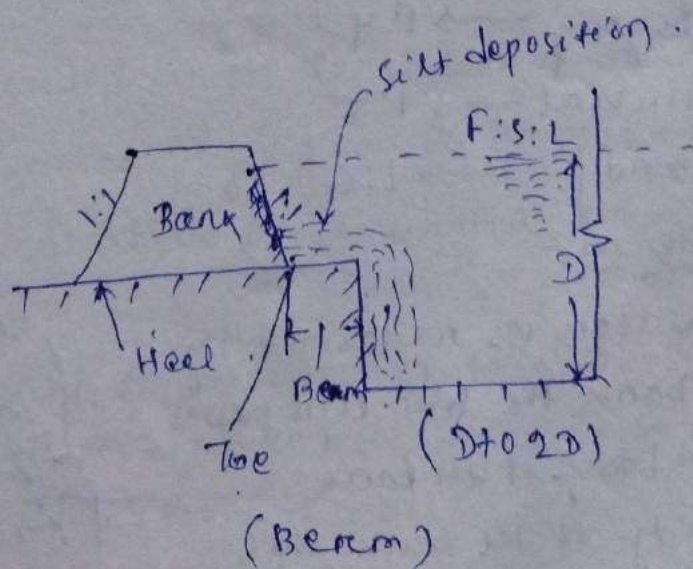 silt deposition.
F.S.L
1:1
Bank
D
Heel
Berm
Toe
(D to 2D)
(Berm)